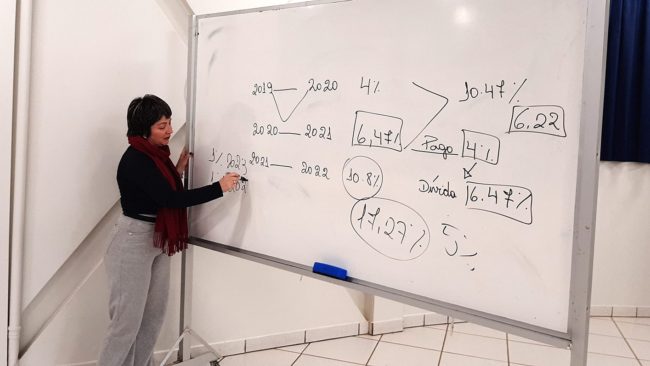 2019 — 2020 4% 10.47%
6,22
2020 — 2021 6,47% Pago 4%
1% 2023 2021 — 2022 10.8% Dívida 6.47%
17,27%